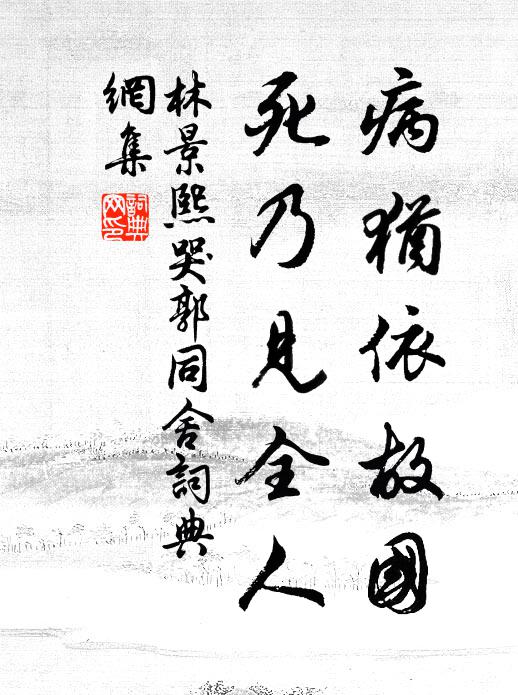 病猶依故國
死乃見全人
林景熙哭郭同舍詞典
網集
詞典
网印